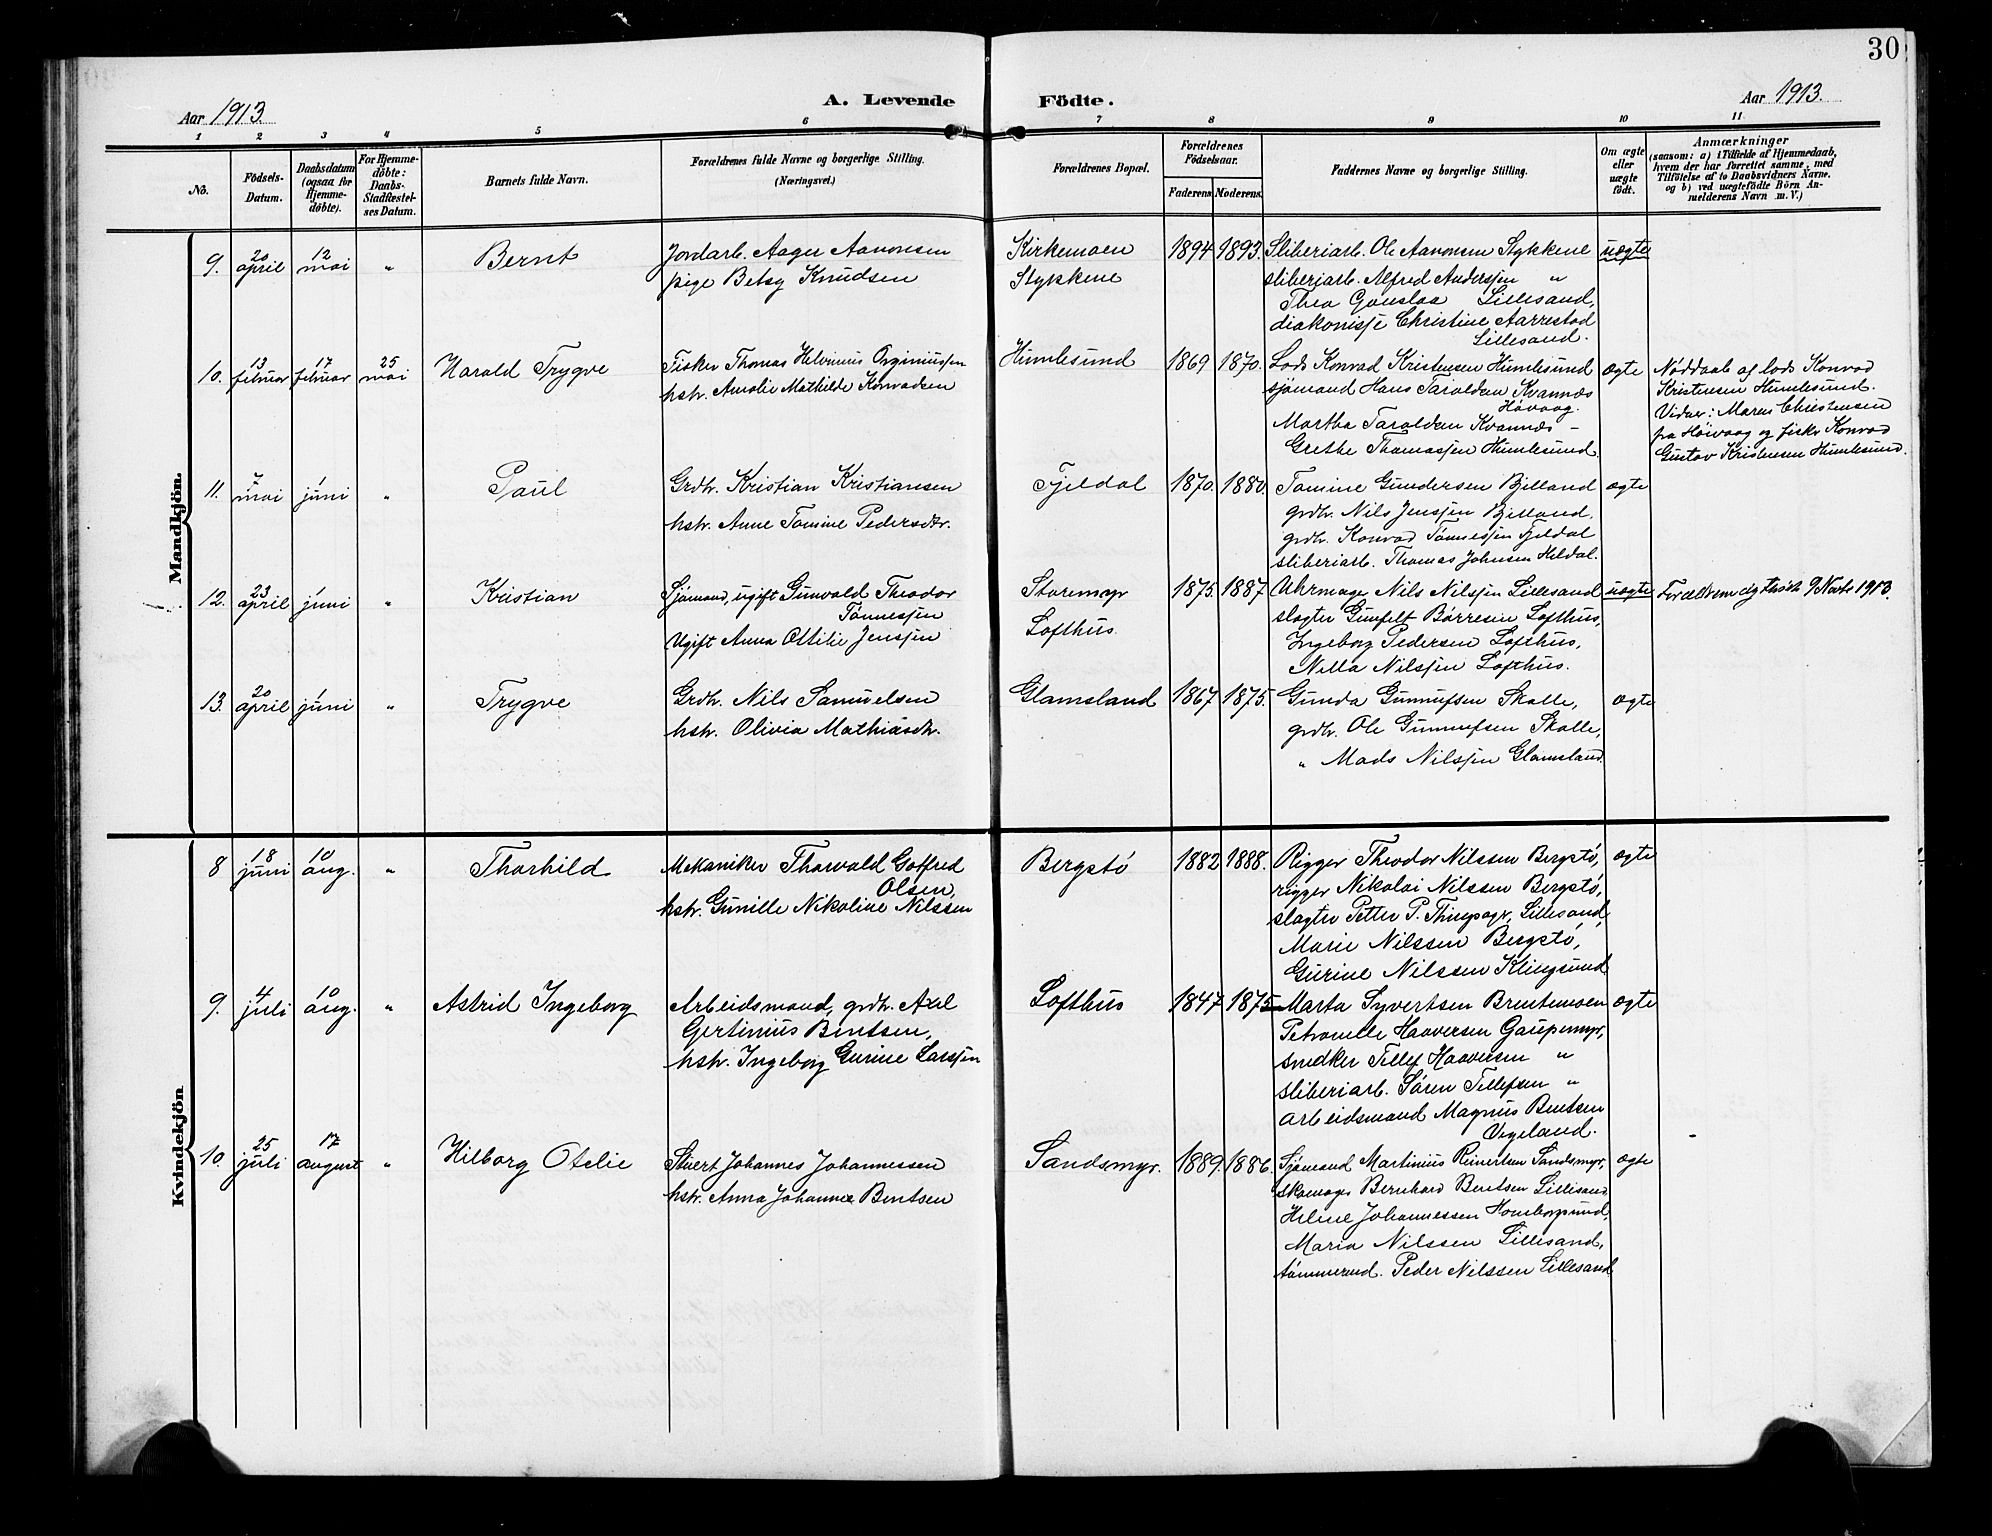 30
Aar 1913. A. Levende Födte. Aar 1913.
1 2 3 4 5 6 7 8 9 10 11
No. Födsels-Datum. Daabsdatum (ogsaa for Hjemme-döbte). For Hjemme-döbte: Daabs-Stadfæstel-ses Datum. Barnets fulde Navn. Forældrenes fulde Navne og borgerlige Stilling. (Næringsvei.) Forældrenes Bopæl. Forældrenes Födselsaar. Faderens. Moderens. Faddernes Navne og borgerlige Stilling. Om ægte eller uægte födt. Anmærkninger (saasom: a) i Tilfælde af Hjemmedaab, hvem der har forrettet samme, med Tilföielse af to Daabsvidners Navne. og b) ved uægtefödte Börn An-melderens Navn m. V.)
Mandkjön.
9. 20 april 12 mai " Bernt Jordarb. Aager Aavonsen Kirkemoen 1894 1893. Sliberiarb. Ole Aavonsen Stykkene uægte
pige Betsy Knudsen Stykkene sliberiarb. Alfred Anderssen "
Thea Lillesand,
diakonisse Christine Aarrestad
Lillesand.
10. 13 februar 17 februar 25 mai Harald Trygve Fisker Thomas Helvinius Orginiussen Humlesund 1869 1870. Lods Konrad Kristensen Humlesund ægte Nøddaab af lods Konrad
hstr. Amalie Mathilde Konradsen sjømand Hans Taraldsen Kvannes Kristensen Humlesund.
Høvaag. Vidner: Maren Christensen
Martha Taraldsen Kvannes - fra Høivaag og fisker Konrad
Grethe Thomassen Humlesund. Gustav Kristensen Humlesund.
11. 7 mai 1 juni " Paul Grdbr. Kristian Kristiansen Tjeldal 1870. 1880. Tomine Gundersen Bjelland ægte
hstr. Anne Tomine Pedersdtr. grdbr. Nils Jenssen Bjelland,
grdbr. Konrad Tønnessen Tjeldal
sliberiarb. Thomas Johnsen Heldal.
12. 23 april 1 juni " Kristian Sjømand, ugift Gunvald Theodor Storemyr 1875. 1887 Uhrmager Nils Nilssen Lillesand uægte 1913.
Tønnessen slagter Gunfelt Børresen Lofthus,
Ugift Anna Ottilie Jenssen Lofthus. Ingeborg Pedersen Lofthus,
Nilla Nilssen Lofthus.
13. 20 april 1 juni " Trygve Grdbr. Nils Samuelsen Glamsland 1867 1875. Gunda Gunnufsen Skalle, ægte
hstr. Olivia Mathiasdtr. grdbr. Ole Gunnufsen Skalle,
" Mads Nilssen Glamsland.
Kvindekjön.
8 18 juni 10 aug. " Thorhild Mekaniker Thorvald Gotfred Bergstø 1882 1888. Rigger Theodor Nilssen Bergstø, ægte
Olsen, rigger Nikolai Nilssen Bergstø,
hstr. Gunille Nikoline Nilssen slagter Petter P. Lillesand,
Marie Nilssen Bergstø,
Gurine Nilssen Klingsund
9. 4 juli 10 aug. " Astrid Ingeborg Arbeidsmand, grdbr. Axel Lofthus 1847 1875 Marta Syvertsen Brentemoen ægte
Gertinius Bentsen, Petronelle Haaversen Gaupemyr,
hstr. Ingeborg Gurine Larssen snedker Tellef Haaversen "
sliberiarb. Søren Tellefsen "
arbeidsmand Magnus Bentsen
Vegeland.
10. 25 juli 17 august " Hilborg Otelie Stuert Johannes Johannessen Sandsmyr. 1889. 1886. Sjømand Martinius Reinertsen Sandsmyr, ægte
hstr. Anna Johanne Bentsen skomager Bernhard Bentsen Lillesand.
Helene Johannessen Homborsund,
Maria Nilssen Lillesand,
tømmermd. Peder Nilssen Lillesand